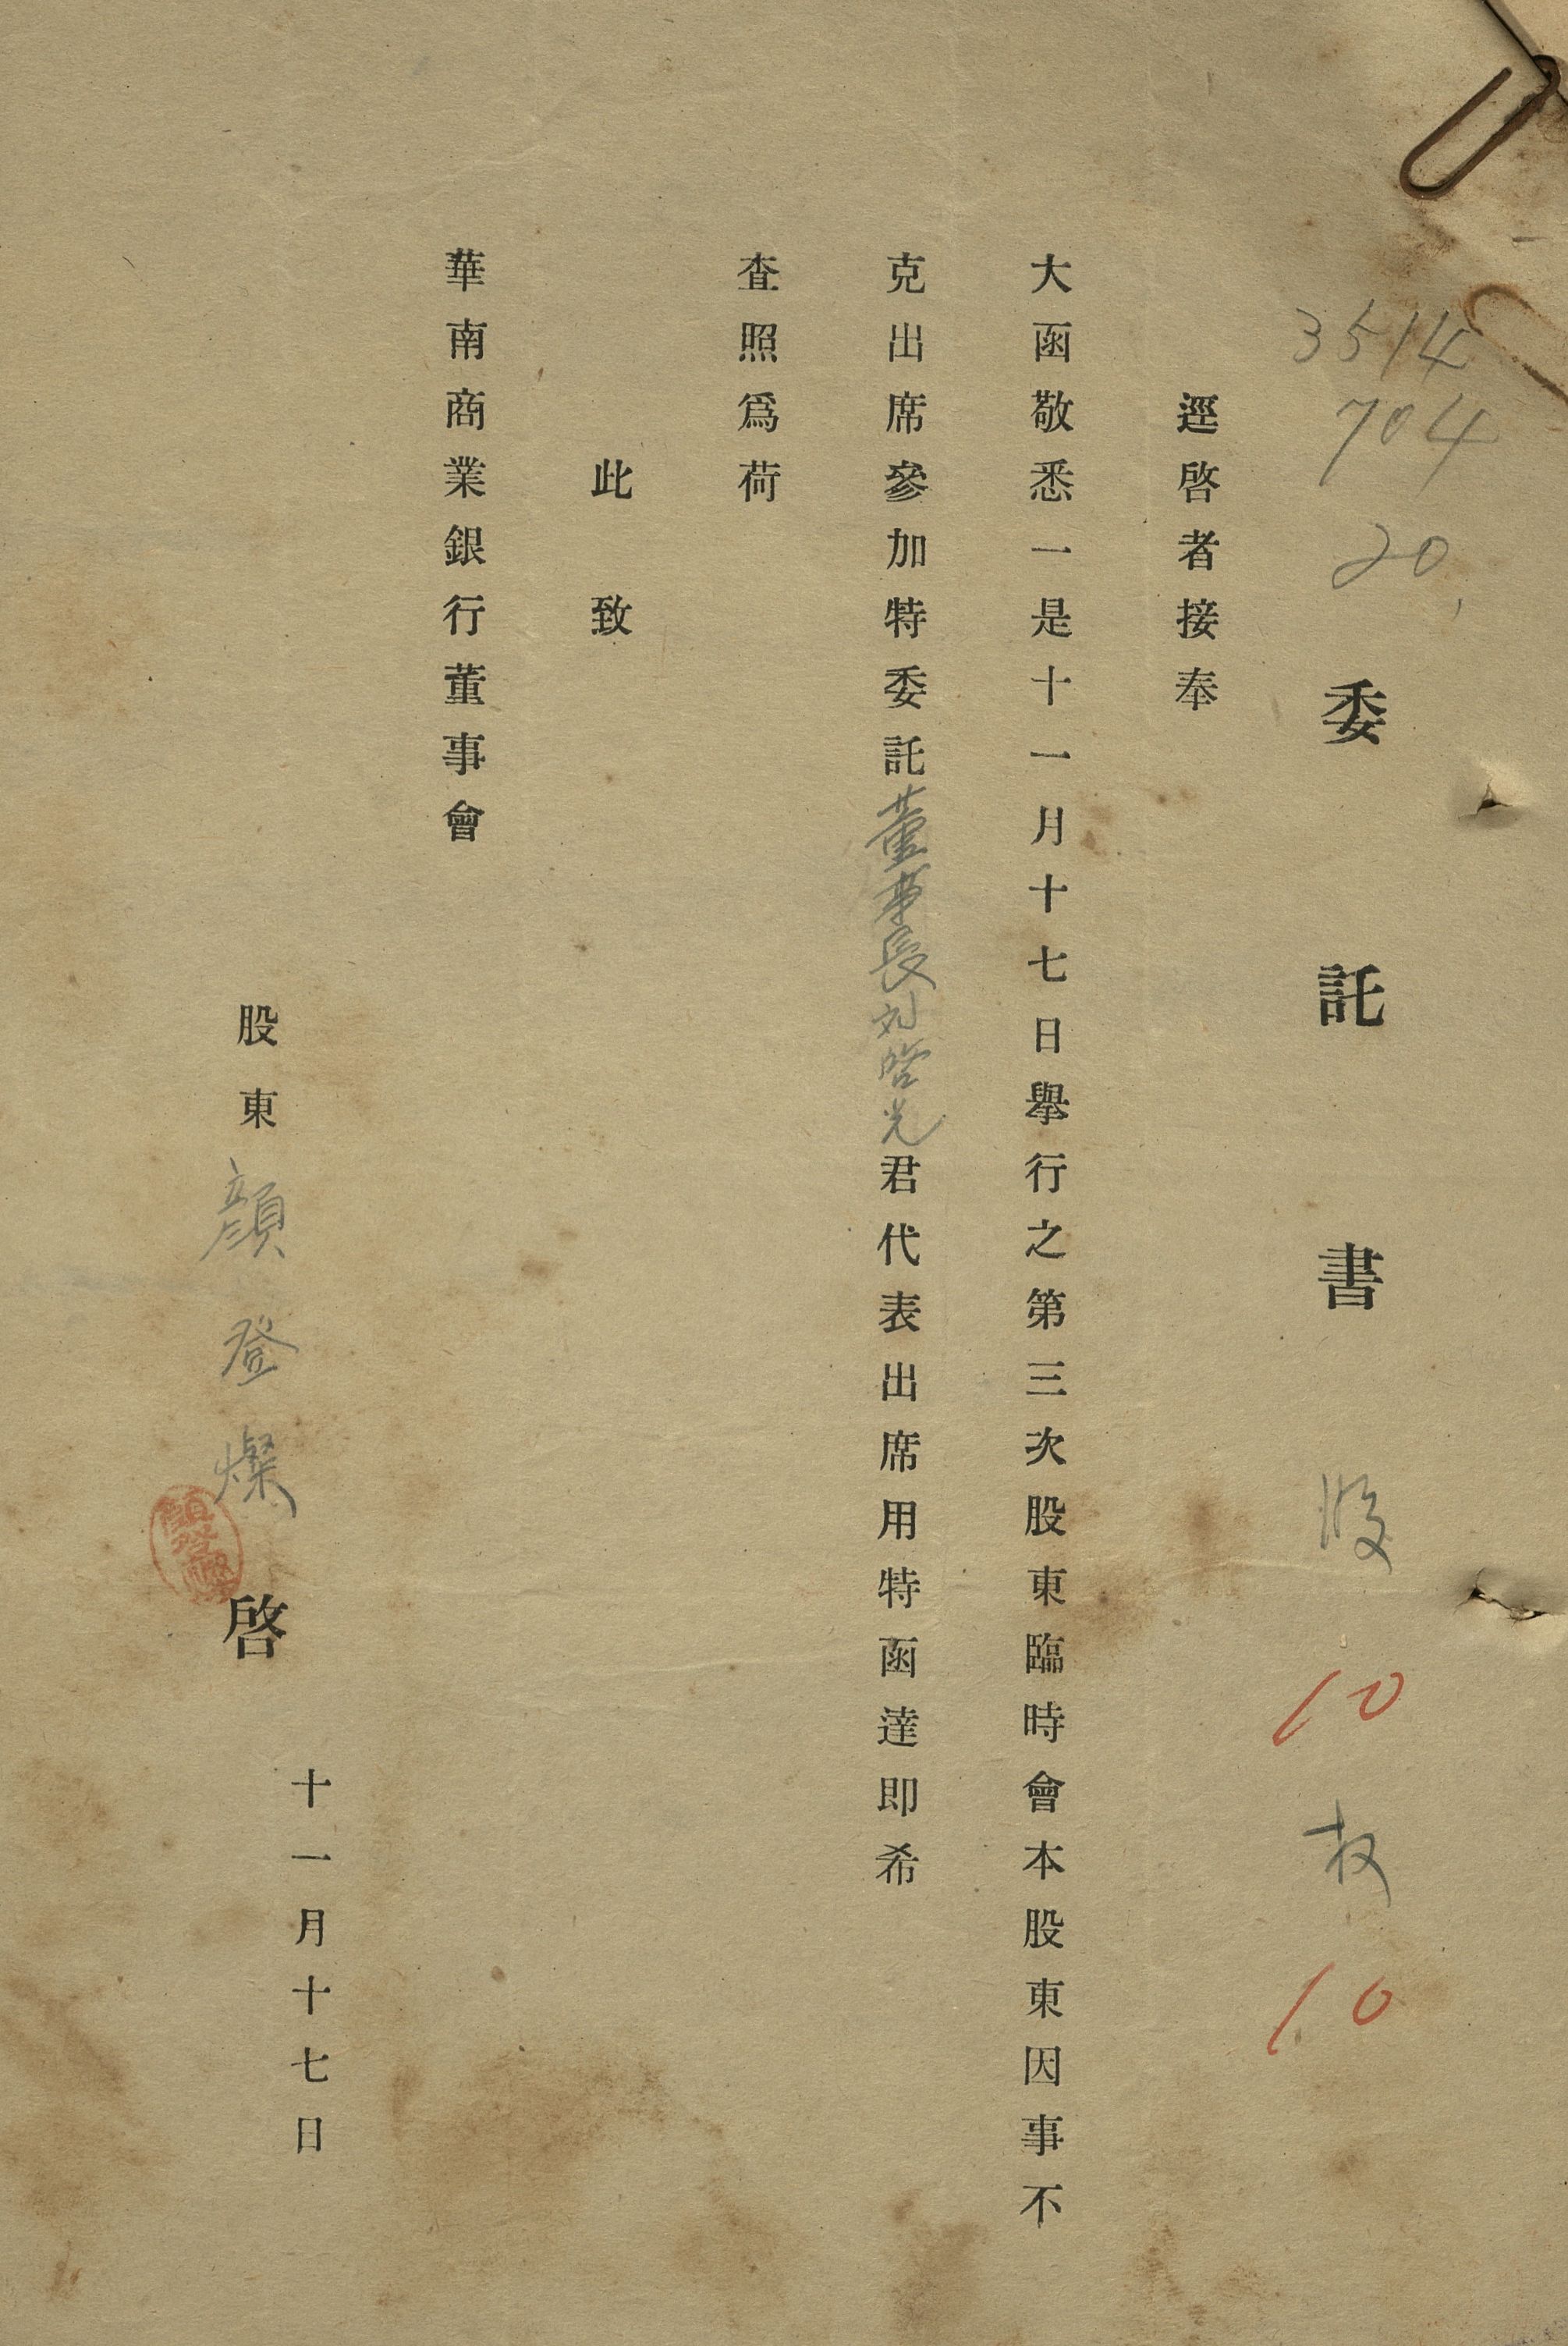 3514
704
20
委託書 股 10 权 10
逕啓者接奉
大函敬悉一是十一月十七日舉行之第三次股東臨時會本股東因事不
克出席參加特委託董事長刘啓光君代表出席用特函達即希
查照爲荷
此致
華南商業銀行董事會
股東 顔登燦 啓
顔登燦
十一月十七日